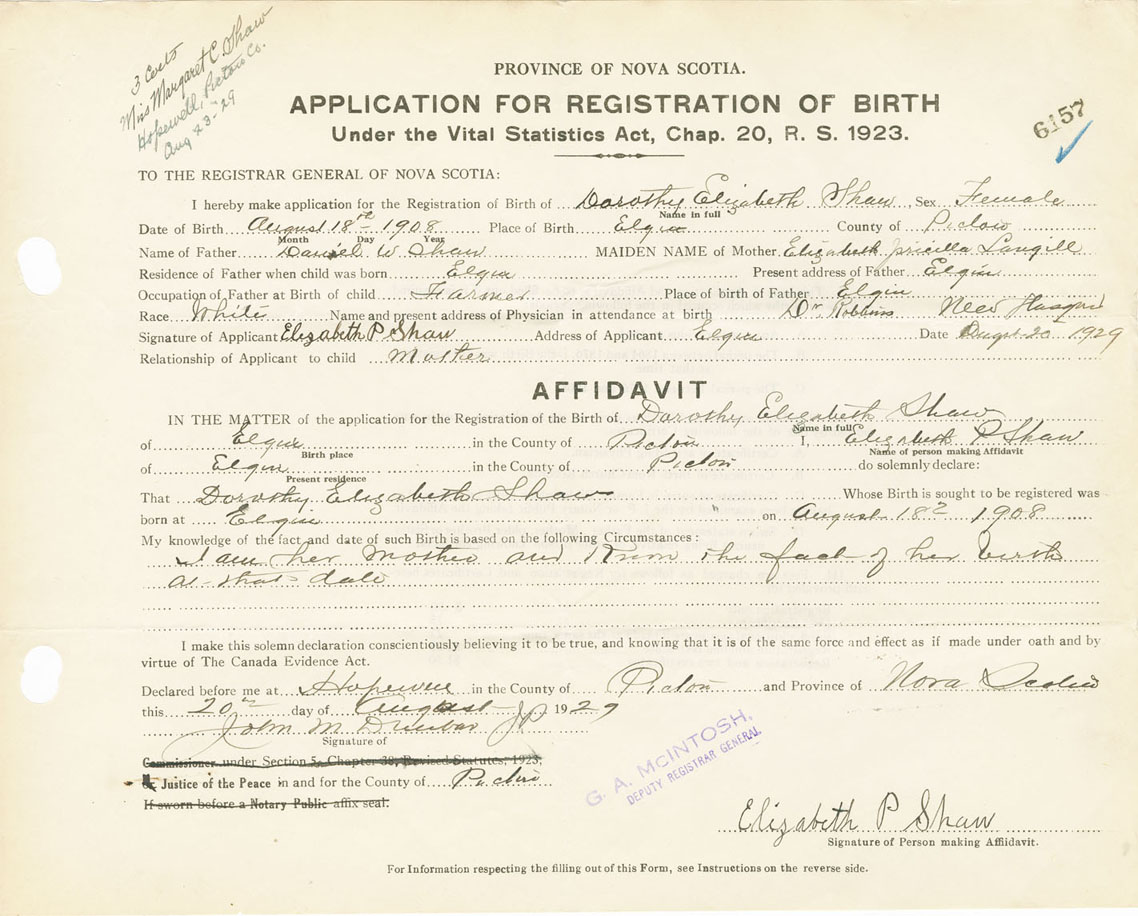 3 Certs
Miss Margaret C. Shaw
Hopewell, Pictou Co.
Aug 23-29
PROVINCE OF NOVA SCOTIA.
APPLICATION FOR REGISTRATION OF BIRTH
Under the Vital Statistics Act, Chap. 20, R. S. 1923.
6157
TO THE REGISTRAR GENERAL OF NOVA SCOTIA:
I hereby make application for the Registration of Birth of Dorothy Elizabeth Shaw Sex Female
Name in full
Date of Birth August 18th 1908 Place of Birth Elgin County of Pictou
Month Day Year
Name of Father Daniel W Shaw MAIDEN NAME of Mother Elizabeth Pricilla Langill
Residence of Father when child was born Elgin Present address of Father Elgin
Occupation of Father at Birth of child Farmer Place of birth of Father Elgin
Race White Name and present address of Physician in attendance at birth Dr Robbins New
Signature of Applicant Elizabeth P Shaw Address of Applicant Elgin Date August 20 1929
Relationship of Applicant to child Mother
AFFIDAVIT
IN THE MATTER of the application for the Registration of the Birth of Dorothy Elizabeth Shaw
Name in full
of Elgin in the County of Pictou I, Elizabeth P Shaw
Birth place Name of person making Affidavit
of Elgin in the County of Pictou do solemnly declare:
Present residence
That Dorothy Elizabeth Shaw Whose Birth is sought to be registered was
born at Elgin on August 18 1908
My knowledge of the fact and date of such Birth is based on the following Circumstances:
I am her Mother and Know the fact of her birth
at that date
I make this solemn declaration conscientiously believing it to be true, and knowing that it is of the same force and effect as if made under oath and by
virtue of The Canada Evidence Act.
Declared before me at Hopewell in the County of Pictou and Province of Nova Scotia
this 20th day of August 1929
John M Dunbar JP
Signature of
Commissioner under Section 5, Chapter 38, Revised Statutes, 1923,
A Justice of the Peace in and for the County of Pictou
If sworn before a Notary Public affix seal.
G. A. McINTOSH,
DEPUTY REGISTRAR GENERAL
Elizabeth P Shaw
Signature of Person making Affidavit.
For Information respecting the filling out of this Form, see Instructions on the reverse side.